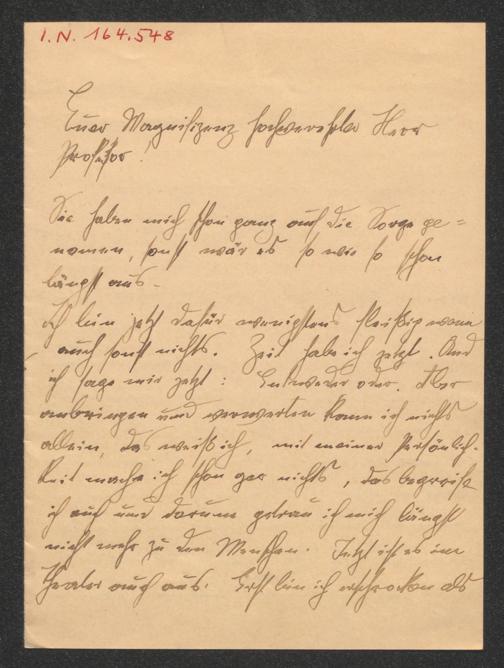 I.N. 164.548
Euer Magnifizenz hochverehrter Herr
Professor!
Sie haben mich schon ganz auf die Sorge ge=
nomen, sonst wär es so wie so schon
längst aus.
Ich bin jetzt dafür wenigstens fleißig wenn
auch sonst nichts. Zeit habe ich jetzt. Und
ich sage mir jetzt: Entweder oder. Aber
anbringen und verwerten kann ich nichts
allein, das weiß ich, mit meiner Persönlich-
keit mache ich schon gar nichts, das begreife
ich auch und darum getrau ich mich längst
nicht mehr zu den Menschen. Jetzt ist es im
Theater auch aus. Erst bin ich erschrocken als